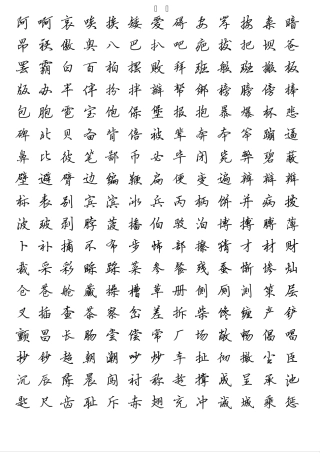 阿 啊 哀 唉 挨 矮 爱 碍 安 岸 按 案 暗
昂 袄 傲 奥 八 巴 扒 吧 疤 拔 把 坝 爸
罢 霸 白 百 柏 摆 败 拜 班 般 斑 搬 板
版 办 半 伴 扮 拌 瓣 帮 绑 榜 膀 傍 棒
包 胞 雹 宝 饱 保 堡 报 抱 暴 爆 杯 悲
碑 北 贝 备 背 倍 被 辈 奔 本 笨 蹦 逼
鼻 比 彼 笔 币 必 毕 闭 毙 弊 碧 蔽
壁 避 臂 边 编 鞭 扁 便 变 遍 辨 辩 辫
标 表 别 宾 滨 冰 兵 丙 柄 饼 并 病 拨
波 玻 剥 脖 菠 播 伯 驳 泊 博 搏 膊 薄
卜 补 捕 不 布 步 怖 部 擦 猜 才 材 财
裁 采 彩 睬 踩 菜 参 餐 残 蚕 惭 惨 灿
仓 苍 舱 藏 操 槽 草 册 侧 厕 测 策 层
叉 插 查 茶 察 岔 差 拆 柴 馋 缠 产 铲
颤 昌 长 肠 尝 偿 常 厂 场 敞 畅 倡 唱
抄 钞 超 朝 潮 吵 炒 车 扯 彻 撤 尘 臣
沉 辰 陈 晨 闯 衬 称 趁 撑 成 呈 承 池
匙 尺 齿 耻 斥 赤 翅 充 冲 诚 城 乘 惩